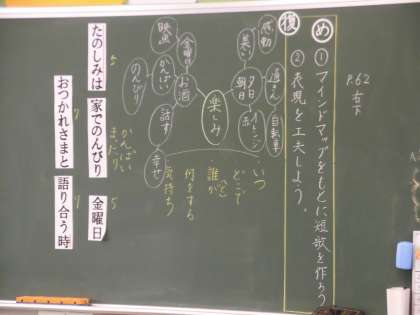 P.62
右下
め ① マインドマップをもとに短歌を作ろう
復 ② 表現を工夫しよう。
楽しみ
感動
美しい
夕日
朝日
道さん
自転車
お酒
金曜日
映画
かんぱい
のんびり
話す
幸せ
いつ
どこで
誰が(と)
何をする
気持ち
5
たのしみは
家でのんびり
かんぱい
まったり
金曜日
5
7
おつかれさまと
語り合う時
7